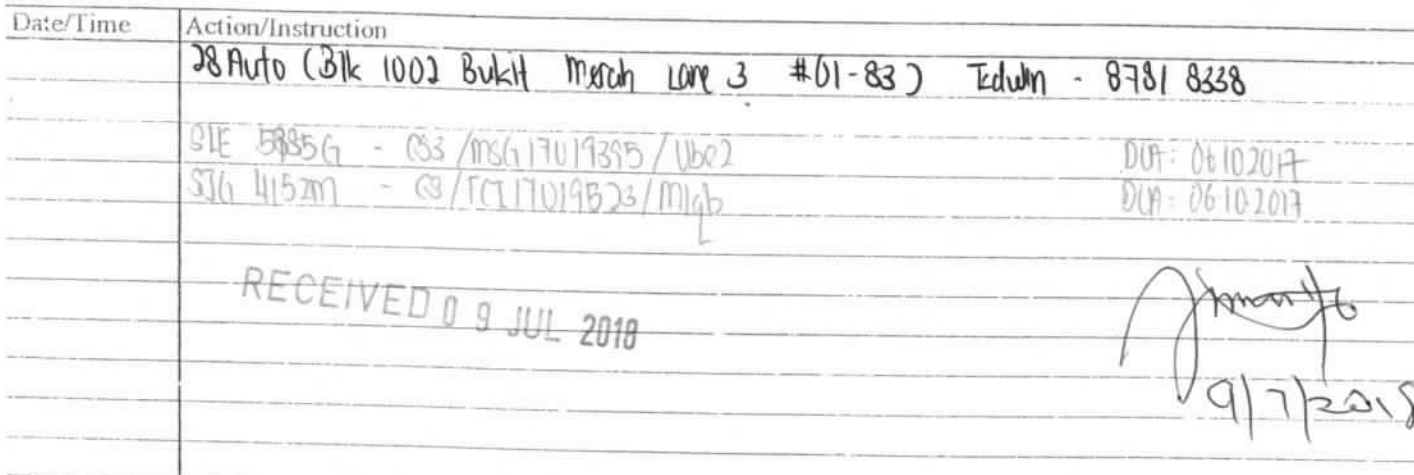 Date/Time Action/Instruction
28 Auto (Blk 1002 Bukit Merah Lane 3 #01-83) Edwin - 8781 8338
5885G - CS3/MSG17019395/Ube2 DOA: 06.10.2017
SJG 4152M - CS/TCI17019523/M1qb DOA: 06.10.2017
RECEIVED 09 JUL 2018
9/7/2018